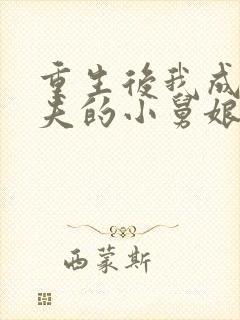 重生後我成
夫的小舅娘
西蒙斯